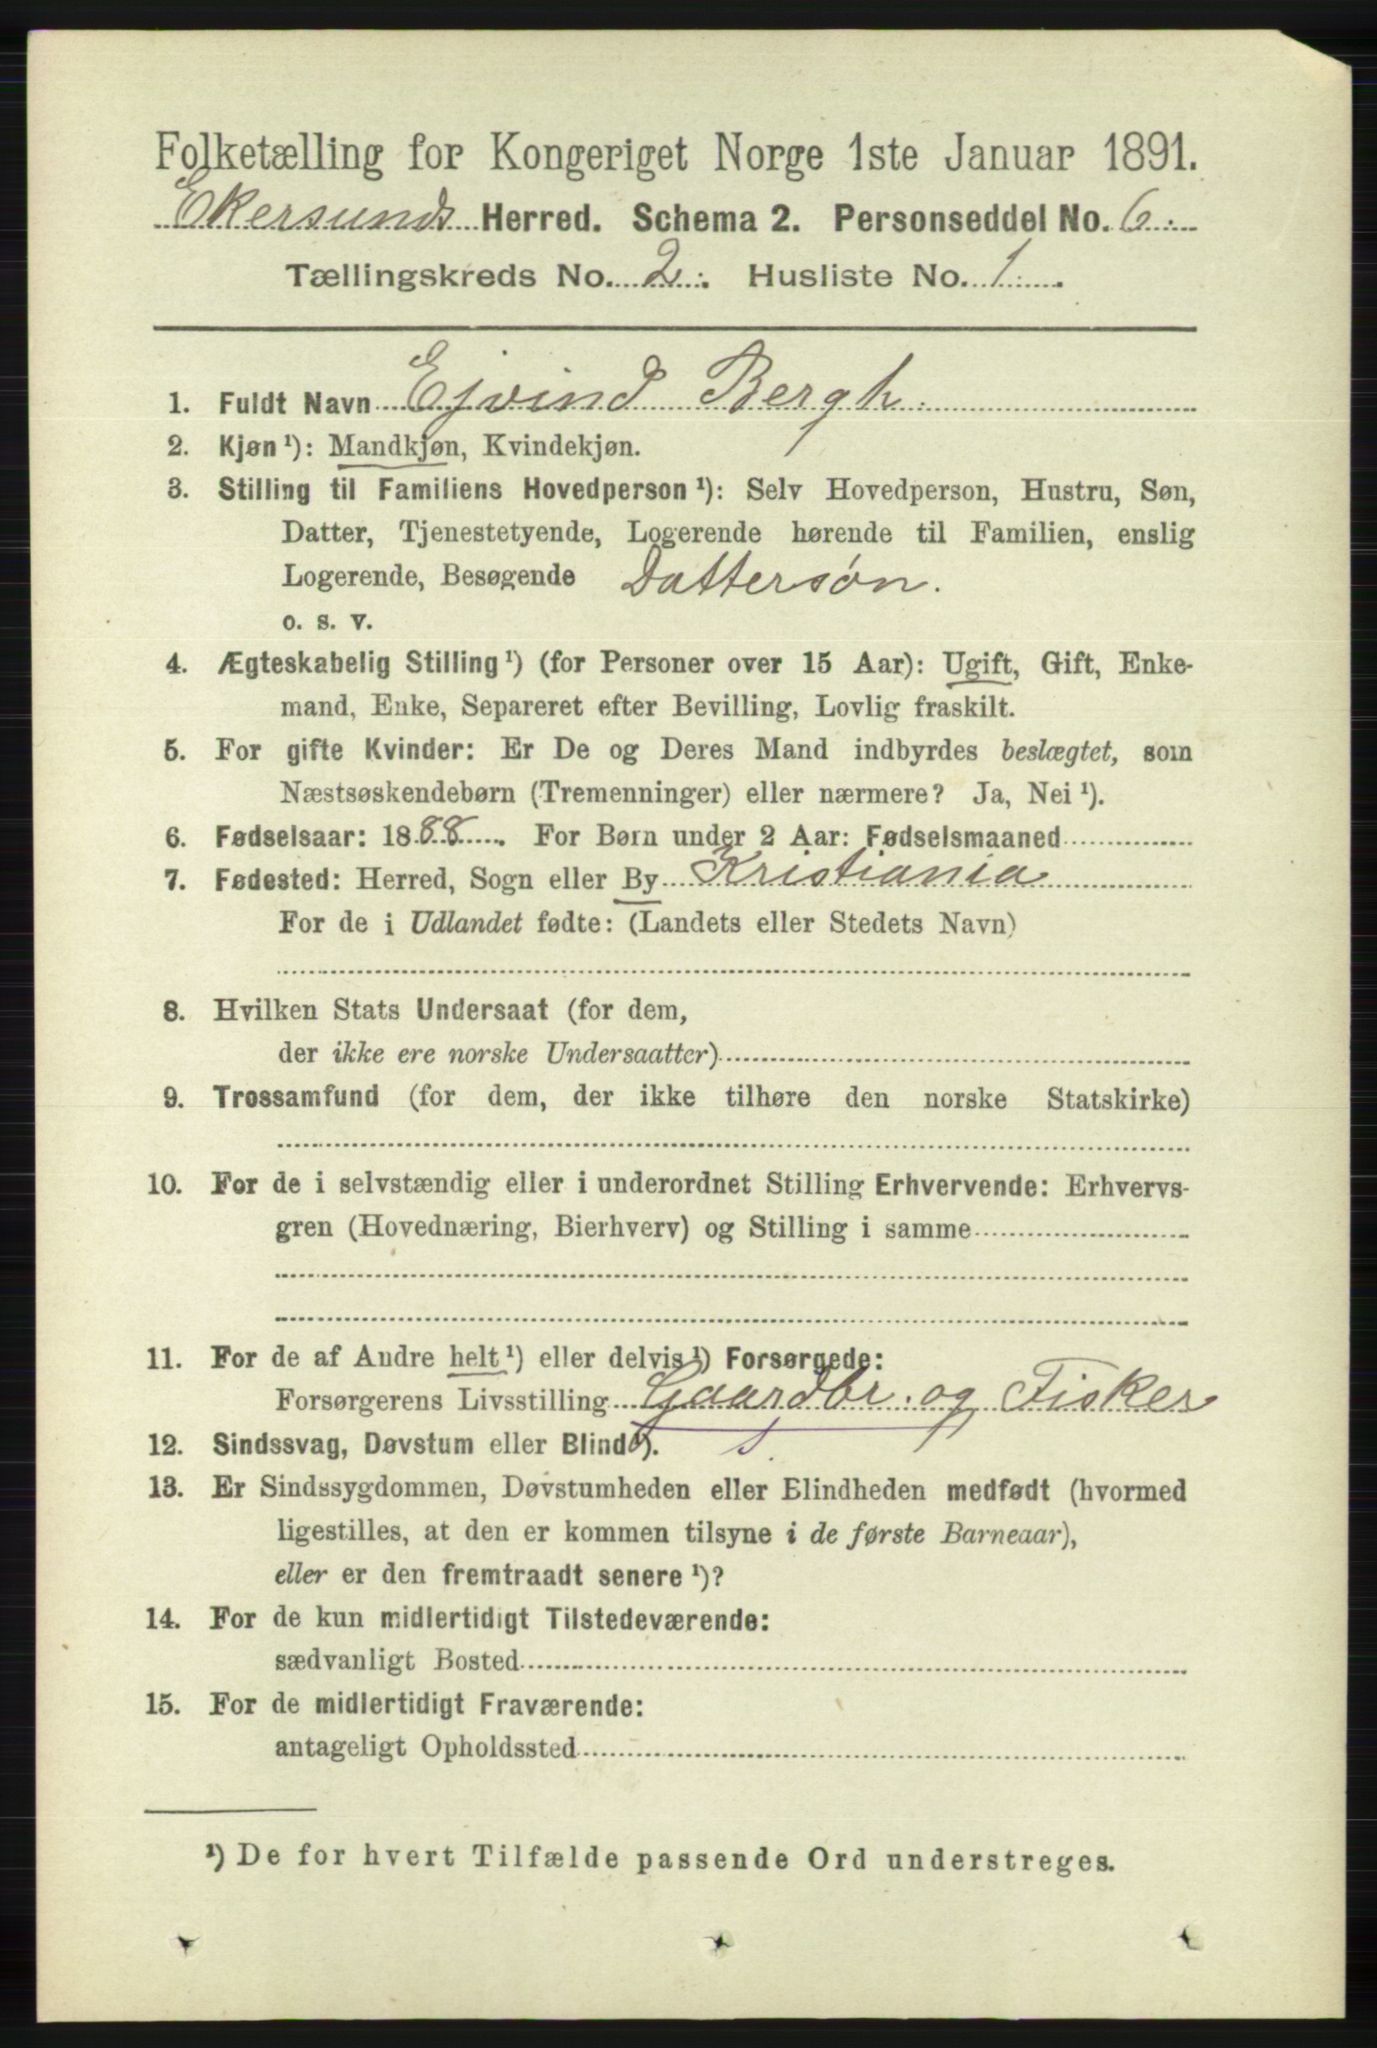 Folketælling for Kongeriget Norge 1ste Januar 1891.
Ekersunds Herred. Schema 2. Personseddel No. 6.
Tællingskreds No. 2. Husliste No. 1.
1. Fuldt Navn Ejvind Bergh.
2. Kjøn ¹): Mandkjøn, Kvindekjøn.
3. Stilling til Familiens Hovedperson ¹): Selv Hovedperson, Hustru, Søn,
Datter, Tjenestetyende, Logerende hørende til Familien, enslig
Logerende, Besøgende Dattersøn.
o. s. v.
4. Ægteskabelig Stilling ¹) (for Personer over 15 Aar): Ugift, Gift, Enke-
mand, Enke, Separeret efter Bevilling, Lovlig fraskilt.
5. For gifte Kvinder: Er De og Deres Mand indbyrdes beslægtet, som
Næstsøskendebørn (Tremenninger) eller nærmere? Ja, Nei ¹).
6. Fødselsaar: 1888. For Børn under 2 Aar: Fødselsmaaned
7. Fødested: Herred, Sogn eller By Kristiania
For de i Udlandet fødte: (Landets eller Stedets Navn)
8. Hvilken Stats Undersaat (for dem,
der ikke ere norske Undersaatter)
9. Trossamfund (for dem, der ikke tilhøre den norske Statskirke)
10. For de i selvstændig eller i underordnet Stilling Erhvervende: Erhvervs-
gren (Hovednæring, Bierhverv) og Stilling i samme
11. For de af Andre helt ¹) eller delvis ¹) Forsørgede:
Forsørgerens Livsstilling Gaardbr. og Fisker
12. Sindssvag, Døvstum eller Blind ¹). s.
13. Er Sindssygdommen, Døvstumheden eller Blindheden medfødt (hvormed
ligestilles, at den er kommen tilsyne i de første Barneaar),
eller er den fremtraadt senere ¹)?
14. For de kun midlertidigt Tilstedeværende:
sædvanligt Bosted
15. For de midlertidigt Fraværende:
antageligt Opholdssted
¹) De for hvert Tilfælde passende Ord understreges.